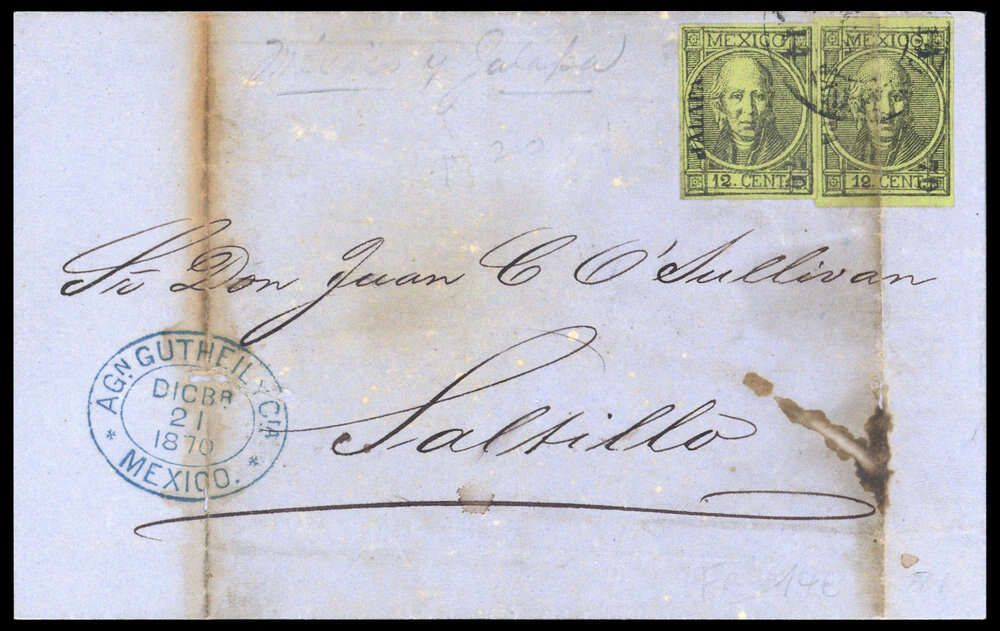 México y Jalapa
MEXICO
JALAPA
12. CENT
MEXICO
12. CENT
20
Sr. Don Juan C O'Sullivan
Saltillo
AGN. GUTHEIL Y CIA
DICBR.
21
1870
* MEXICO. *